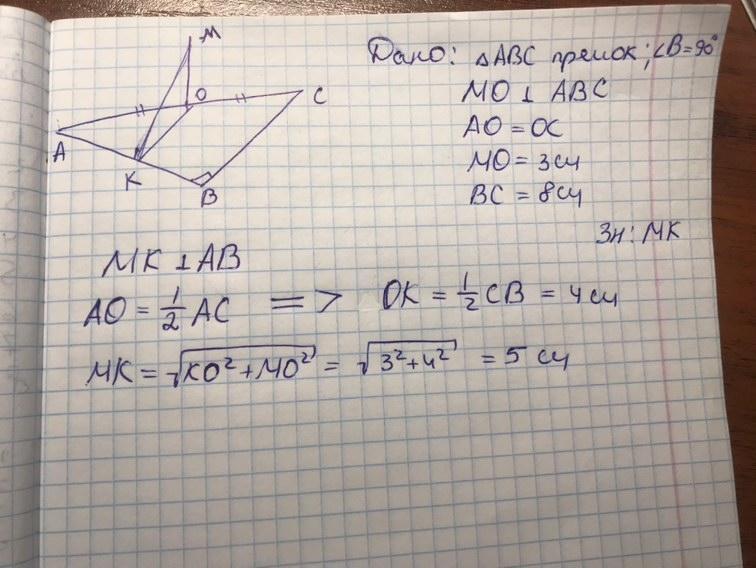 M
O
C
A
K
B
Дано: △ABC прямок; ∠B=90°
MO ⊥ ABC
AO = OC
MO = 3 см
BC = 8 см
Зн: MK
MK ⊥ AB
AO = 1/2 AC => OK = 1/2 CB = 4 см
MK = √(KO² + MO²) = √(3² + 4²) = 5 см